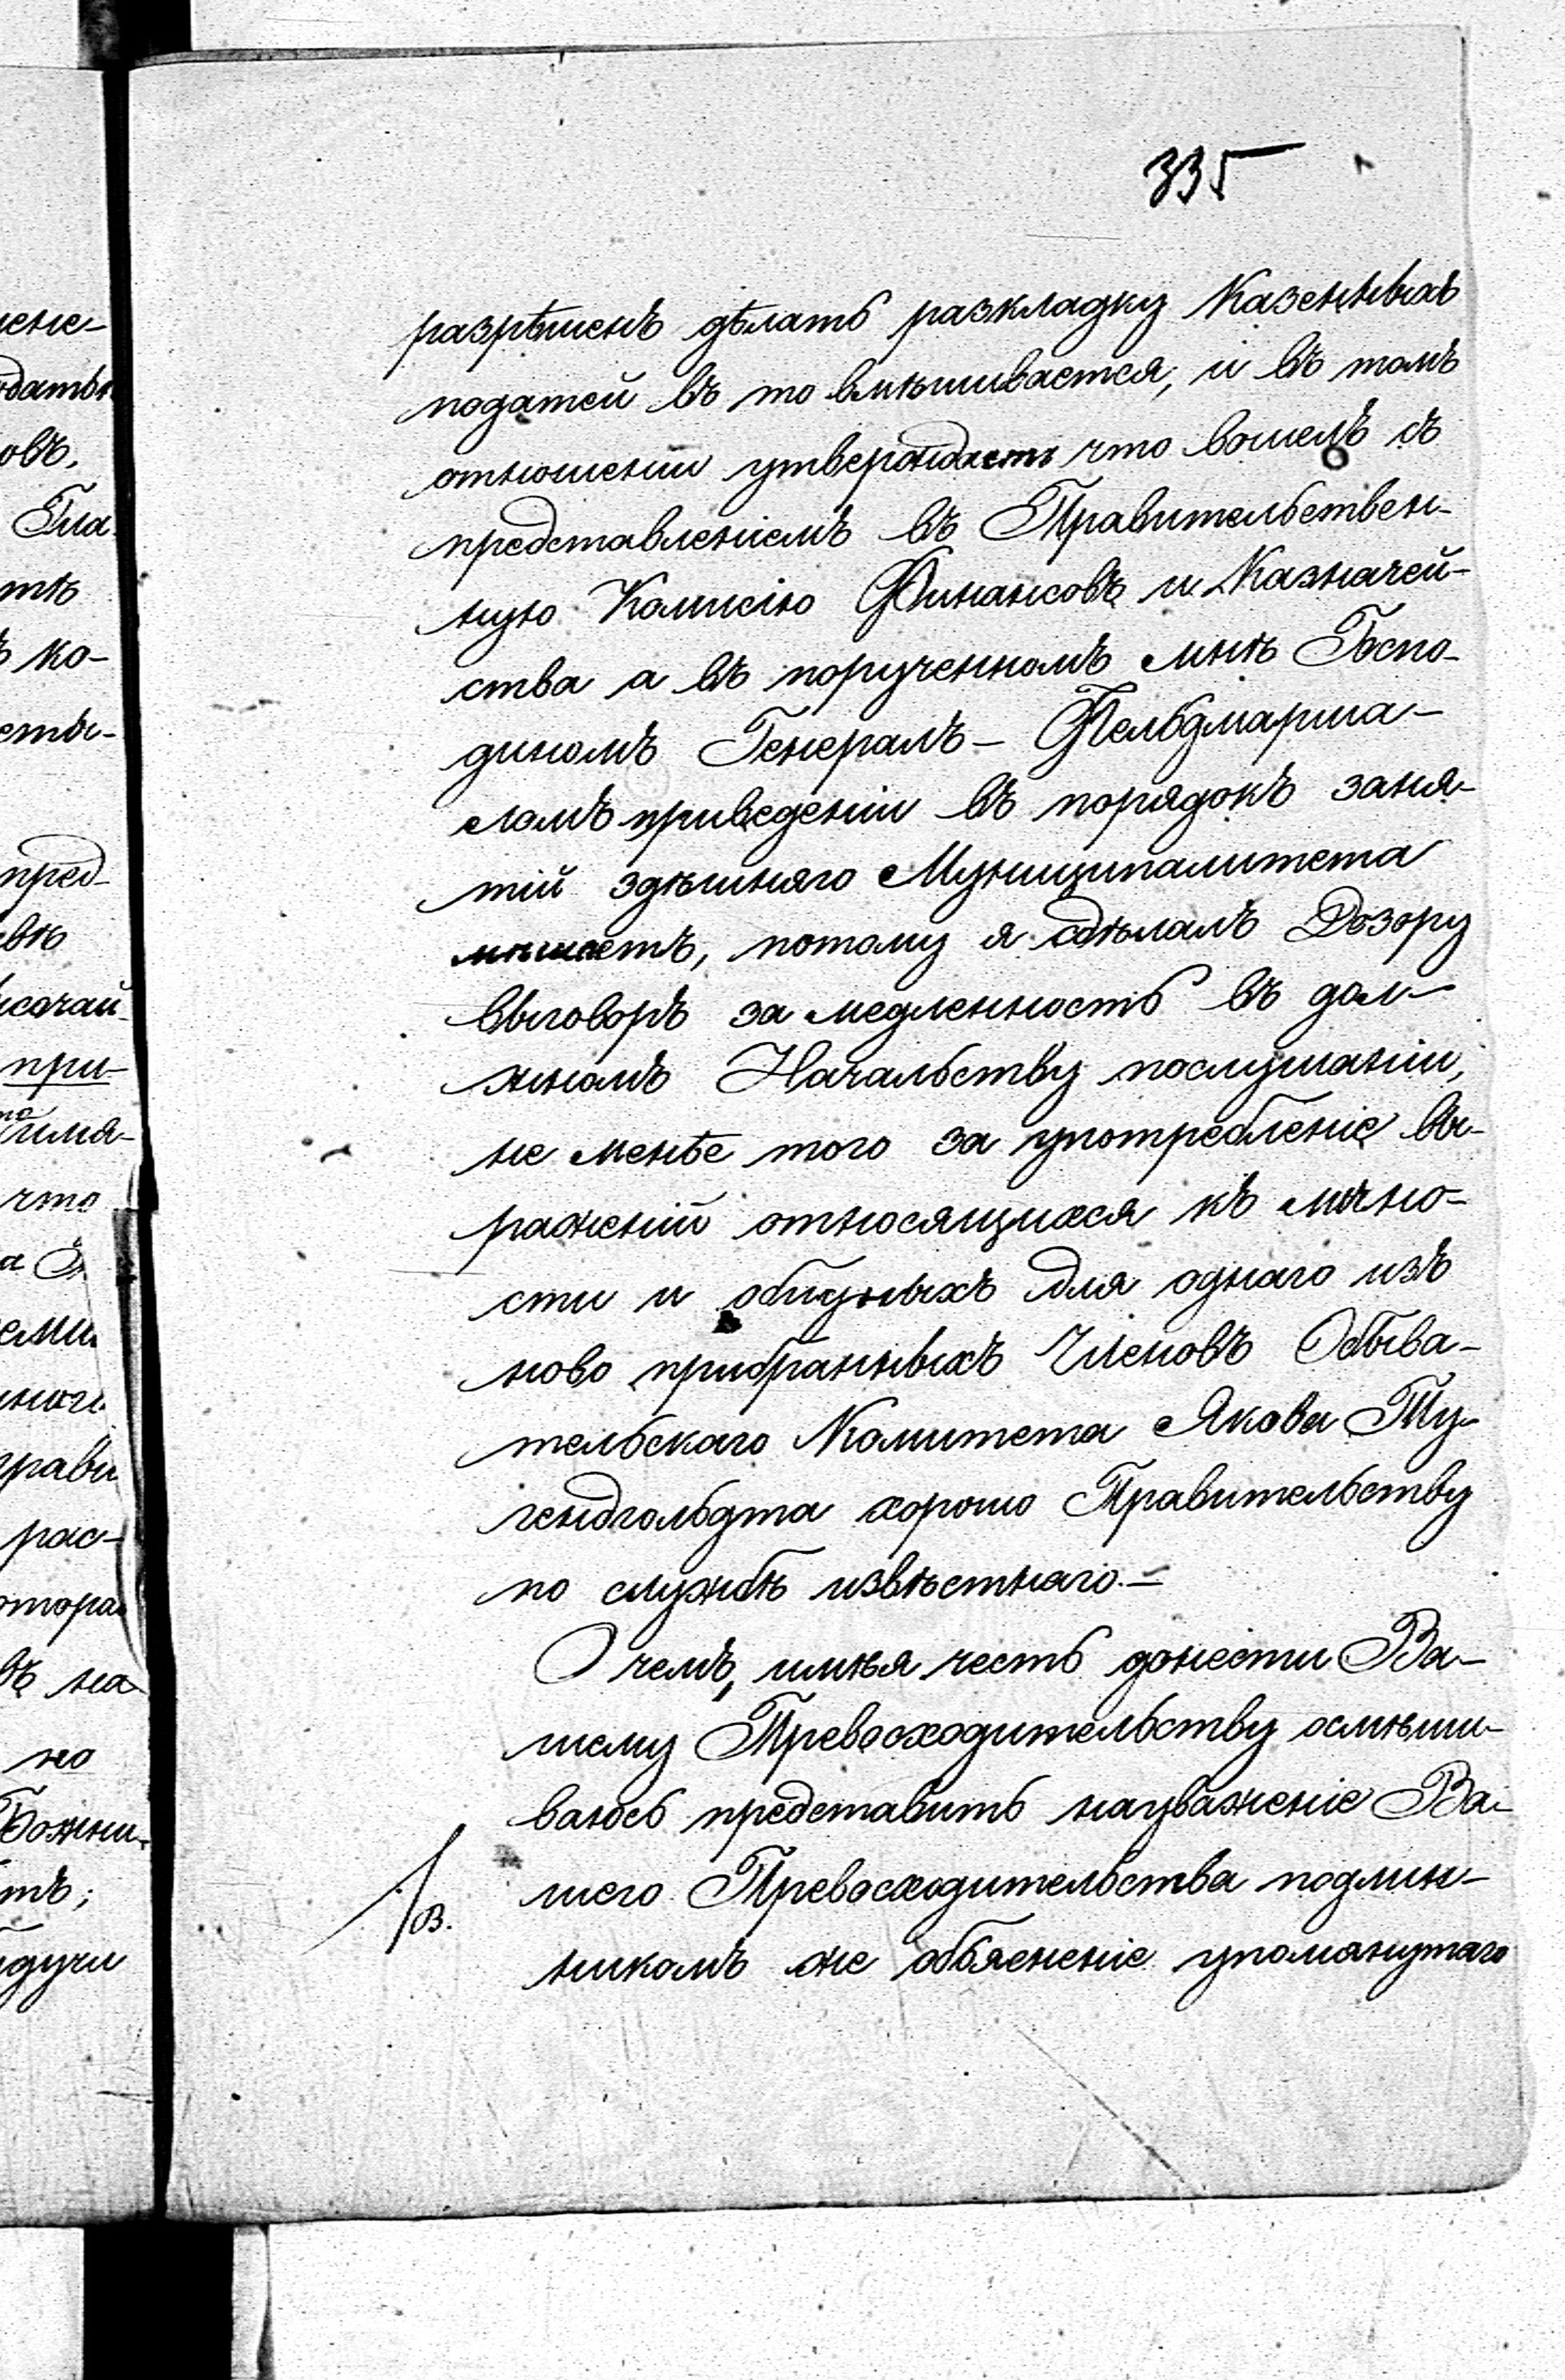 335
разрѣшенъ дѣлать разкладку Казенныхъ
податей въ то вмѣшивается, и въ томъ
отношеніи утверждаетъ что вошелъ съ
представленіемъ въ Правительствен-
ную Комисію Финансовъ и Казначей-
ства а въ порученномъ мнѣ Госпо-
диномъ Генералъ-Фельдмарша-
ломъ приведеніи въ порядокъ заня-
тій здѣшняго Муниципалитета
мѣшаетъ, потому я сдѣлалъ Дозору
выговоръ за медленность въ дол-
жномъ Начальству послушаніи,
не менѣе того за употребленіе вы-
раженій относящихся къ лично-
сти и обидныхъ для однаго изъ
ново прибранныхъ Членовъ Обыва-
тельскаго Комитета Якова Ту-
гендгольдта хорошо Правительству
по службѣ извѣстнаго.—
О чемъ, имѣя честь донести Ва-
шему Превосходительству осмѣли-
ваюсь представить науваженіе Ва-
шего Превосходительства подлин-
никомъ же объясненіе упомянутаго
/В.
ене-
датьи
овъ.
Гла.
тѣ
ъ ко-
еты-
пред-
евѣ
исочай-
при-
то
имя-
что
еми
рас-
отора
въ на
но
Божни-
тъ;
дучи